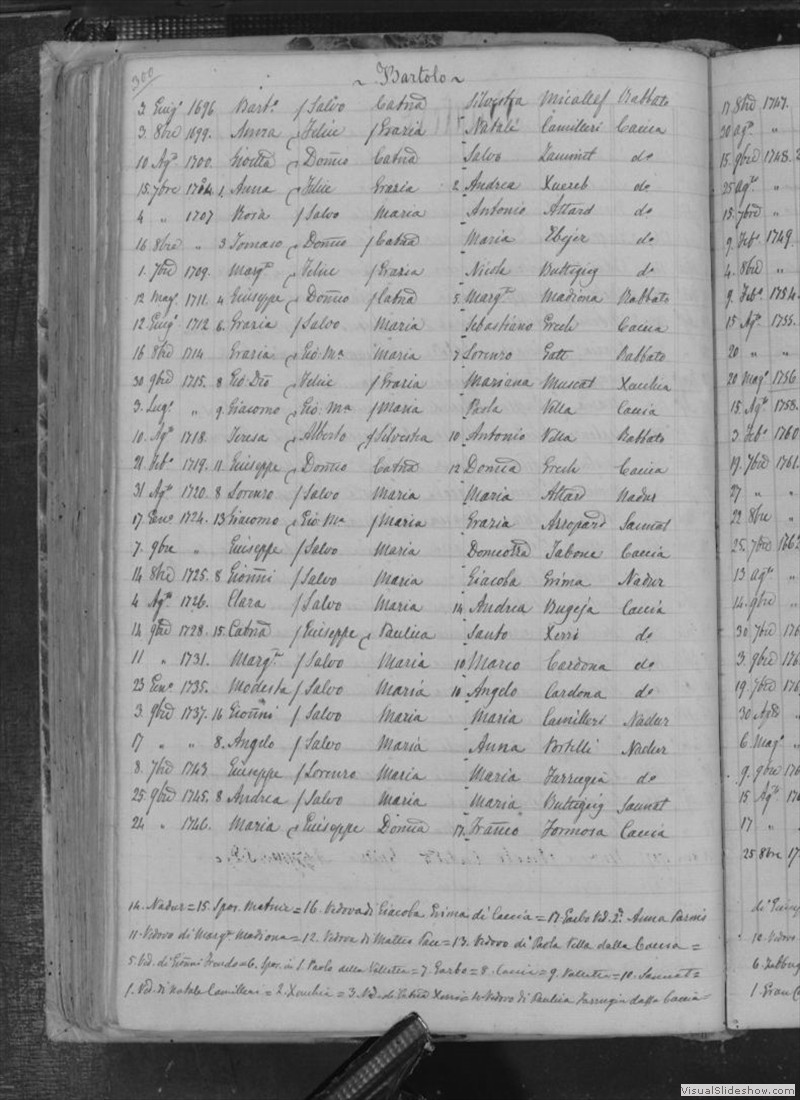 300
~ Bartolo ~
3 Giug.º 1696 Bart.º f Salvo Catna Silvestra Micallef Rabbato
3. 8bre 1699. Feliu f Grazia Natale Camilleri Caccia
10 Ag.º 1700. Domco Catna Salvo Zammit do
15. 7bre 1704. 1. Anna Feliu Grazia 2. Andrea Xuereb do
4 " 1707 Rosa f Salvo Maria Antonio Attard do
16 8bre " 3 Tomaso Domco f Catna Maria Ebejer do
1. 7bre 1709. Marg.ta Feliu f Grazia Nicola Buttigieg do
12 Mag.º 1711. 4 Giuseppe Domco f Catna 5. Marg.ta Madiona Rabbato
12 Giug.º 1712 6. Grazia f Salvo Maria Sebastiano Grech Caccia
16 8bre 1714 Grazia Gio: Ma Maria 7 Lorenzo Gatt Rabbato
30 9bre 1715. 8 Gio: Dio Feliu f Grazia Mariana Muscat Xeuchia
3. Lug.º " 9. Giacomo Gio: Ma f Maria Paola Villa Caccia
10. Ag.º 1718. Teresa Alberto f Silvestra 10. Antonio Villa Rabbato
21 Feb.º 1719. 11 Giuseppe Domco Catna 12 Domca Grech Caccia
31 Ag.º 1720. 8 Lorenzo f Salvo Maria Maria Attard Nadur
17 Gen.º 1724. 13 Giacomo Gio: Ma f Maria Grazia Assopard Sannat
7. 9bre " Giuseppe f Salvo Maria Tabone Caccia
14 8bre 1725. 8 Gionni f Salvo Maria Giacoba Grima Nadur
4 Ag.º 1726. Clara f Salvo Maria 14. Andrea Bugeja Caccia
14 9bre 1728. 15. Catna f Giuseppe Paulica Santo Xerri do
11 " 1731. Marg.ta f Salvo Maria 10 Marco Cardona do
23 Gen.º 1735. Modesta f Salvo Maria 10 Angelo Cardona do
3. 9bre 1737. 16 Gionni f Salvo Maria Maria Camilleri Nadur
17 " " 8. Angelo f Salvo Maria Anna Portelli Nadur
8. 7bre 1743 Giuseppe f Lorenzo Maria Maria Farrugia do
25. 9bre 1745. 8 Andrea f Salvo Maria Maria Buttigieg Sannat
24 " 1746. Maria Giuseppe Domca 17. Franco Formosa Caccia
14. Nadur = 15. Spos. Matrice = 16. Vedova di Giacoba Grima di Caccia = 17. Garbo Ved. 2.º Anna Parnis
11. Vedovo di Marg.ta Madiona = 12. Vedova di Matteo Pace = 13. Vedovo di Paola Villa dalla Caccia =
5. Ved. di Gionni = 6. Spos. in S. Paolo della Valletta = 7. Garbo = 8. Caccia = 9. Valletta = 10. Sannat =
1. Ved. di Natale Camilleri = 2. Xeuchia = 3. Ved. di Catna 4. Vedovo di Paulica Farrugia dalla Caccia =
17 8bre 1747.
20 ag.º "
15. 9bre 1748.
25 ag.º "
15. 7bre "
9. Feb.º 1749.
4. 8bre "
9. Feb.º 1754.
15 Ag.º 1755.
20 " "
20 Mag.º 1756
15. Ag.º 1758.
3. Feb.º 1760.
19. 7bre 1761.
27 " "
22 8bre "
25. 7bre 1762
13 ag.º "
14. 9bre "
30 7bre 176
3. 9bre 176
19. 7bre 176
30 Ag.º "
6. Mag.º "
9. 9bre 176
15 Ag.º 17
17 "
25 8bre 17
12. Vedovo
6. Zebbug
1. Gran C
VisualSlideshow.com